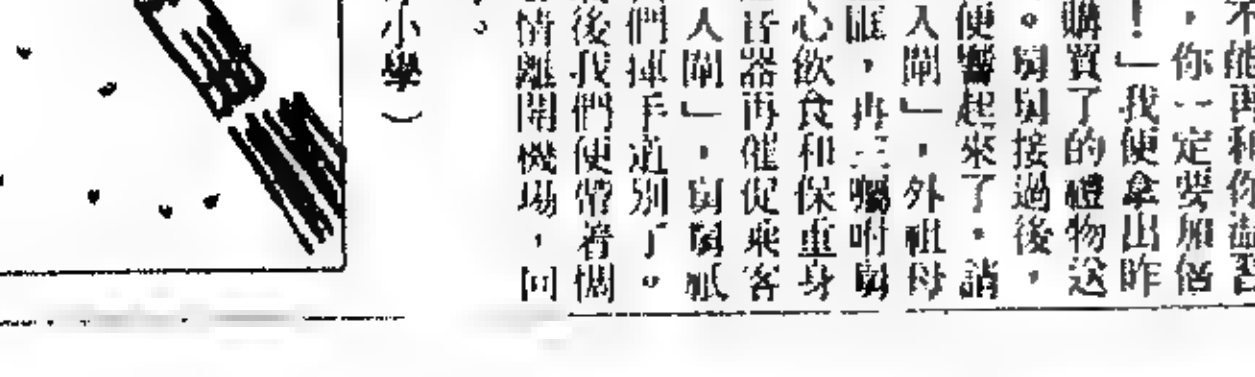 不能再和你溫習
，你一定要加倍
！」我便拿出昨
購買了的禮物送
。舅舅接過後，
便響起來了，請
入閘」，外祖母
眶，再三囑咐舅
心飲食和保重身
音器再催促乘客
入閘」，舅舅祇
們揮手道別了。
後我們便帶着惆
情離開機場，回
。
小學）